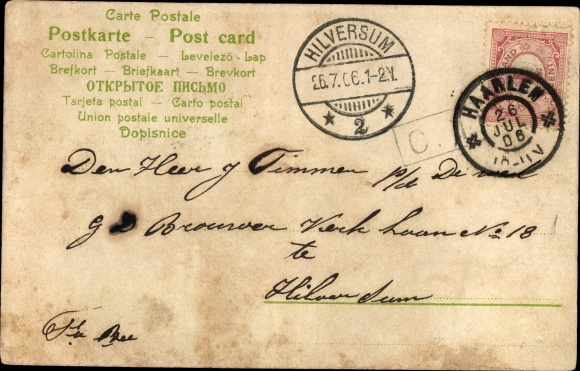 Carte Postale
Postkarte – Post card
Cartolina Postale – Levelező-Lap
Brefkort – Briefkaart – Brevkort
ОТКРЫТОЕ ПИСЬМО
Tarjeta postal – Carfo postal
Union postale universelle
Dopisnice
HILVERSUM
26.7.06.1-2N.
* 2 *
HAARLEM
26
JUL
06
C.
Den Heer J Timmer p/a De
G D Brouwer Kerk laan No 18
te
Hilversum